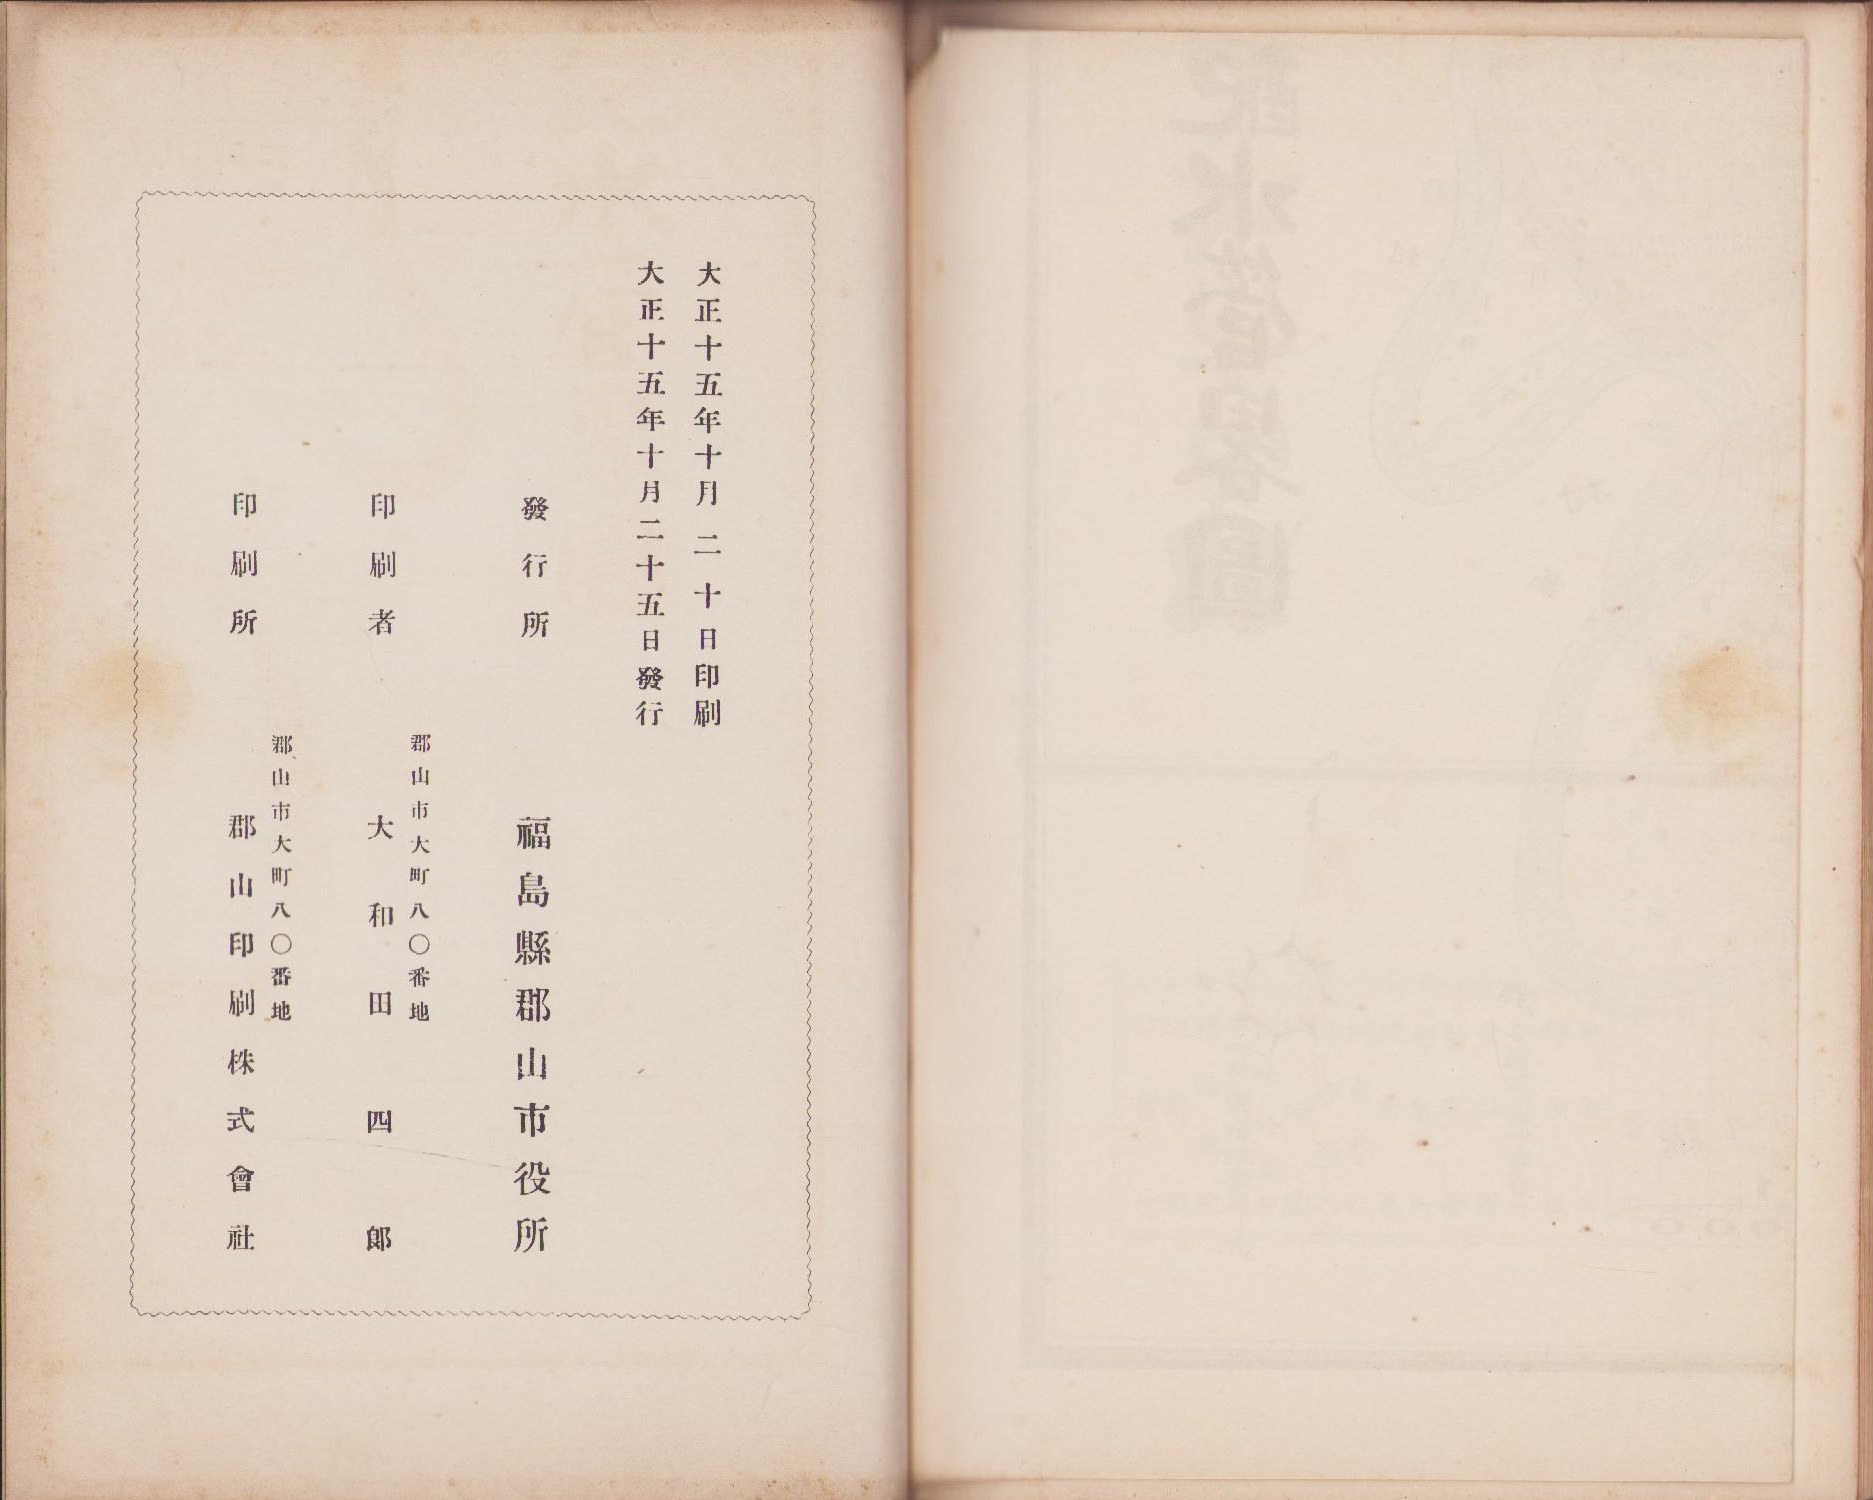 大正十五年十月二十日印刷
大正十五年十月二十五日發行
發行所
福島縣郡山市役所
印刷者
郡山市大町八〇番地
大和田四郎
印刷所
郡山市大町八〇番地
郡山印刷株式會社